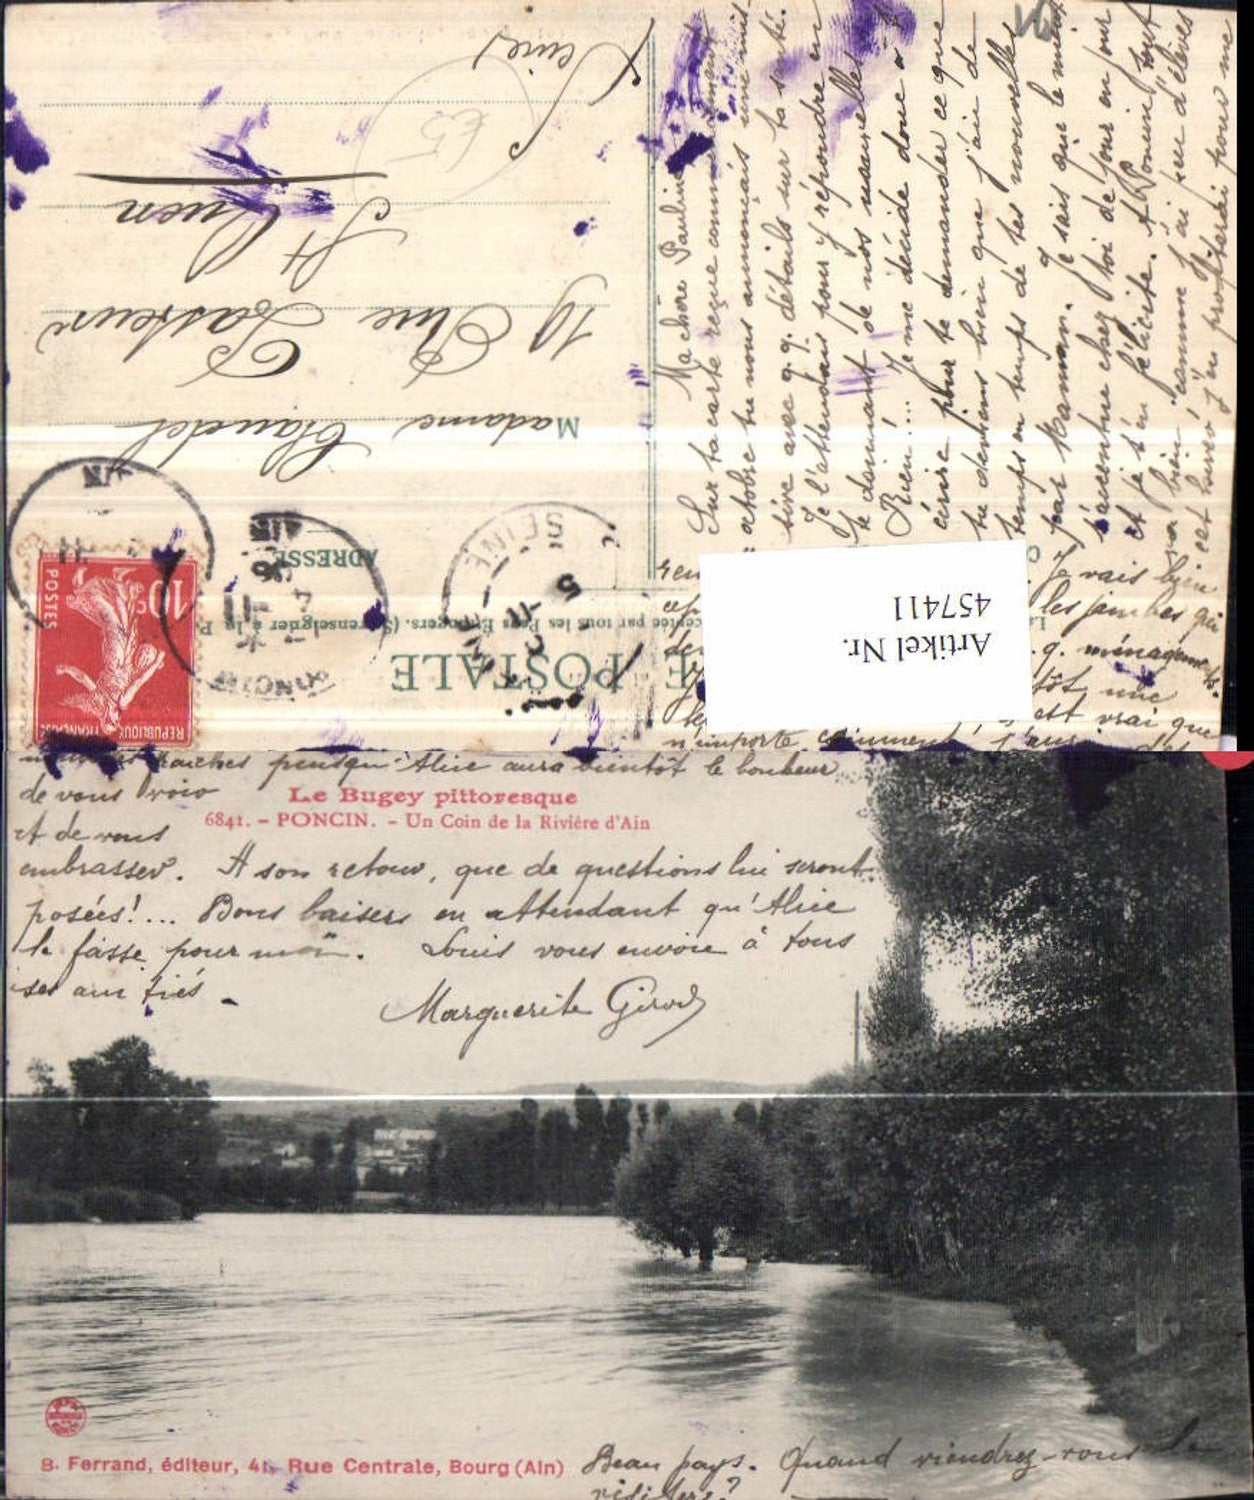 CARTE POSTALE
ADRESSE
Madame Claudel
19 Rue Pasteur
St Ouen
Seine
65
RÉPUBLIQUE FRANÇAISE
10c
POSTES
SEINE
AIN
Artikel Nr.
457411
Ma chère Pauline
Sur ta carte reçue
octobre tu nous annonçais une mis-
sive avec q.q. détails sur ta santé.
Je l'attendais pour y répondre en
te donnant de nos nouvelles
Rien!... Je me décide donc à t'
écrire pour te demander ce que
tu deviens bien que j'aie de
temps en temps de tes nouvelles
par Maman. Je sais que le mieux
s'accentue chez toi de jour en jour
et je t'en félicite. A Poncin tout
va bien comme j'ai peu d'élèves
cet hiver j'en profiterai pour me
Je vais bien
les jambes qui
q. ménagements.
tôt, une
est vrai que
n'importe comment
fraîches puisqu'Alice aura bientôt le bonheur
de vous voir
et de vous
embrasser. A son retour, que de questions lui seront
posées!... Bons baisers en attendant qu'Alice
le fasse pour moi. Louis vous envoie à tous
ses amitiés.
Marguerite Girod
Le Bugey pittoresque
6841. - PONCIN. - Un Coin de la Rivière d'Ain
B. Ferrand, éditeur, 41, Rue Centrale, Bourg (Ain)
Beau pays. Quand viendrez-vous le
visiter?